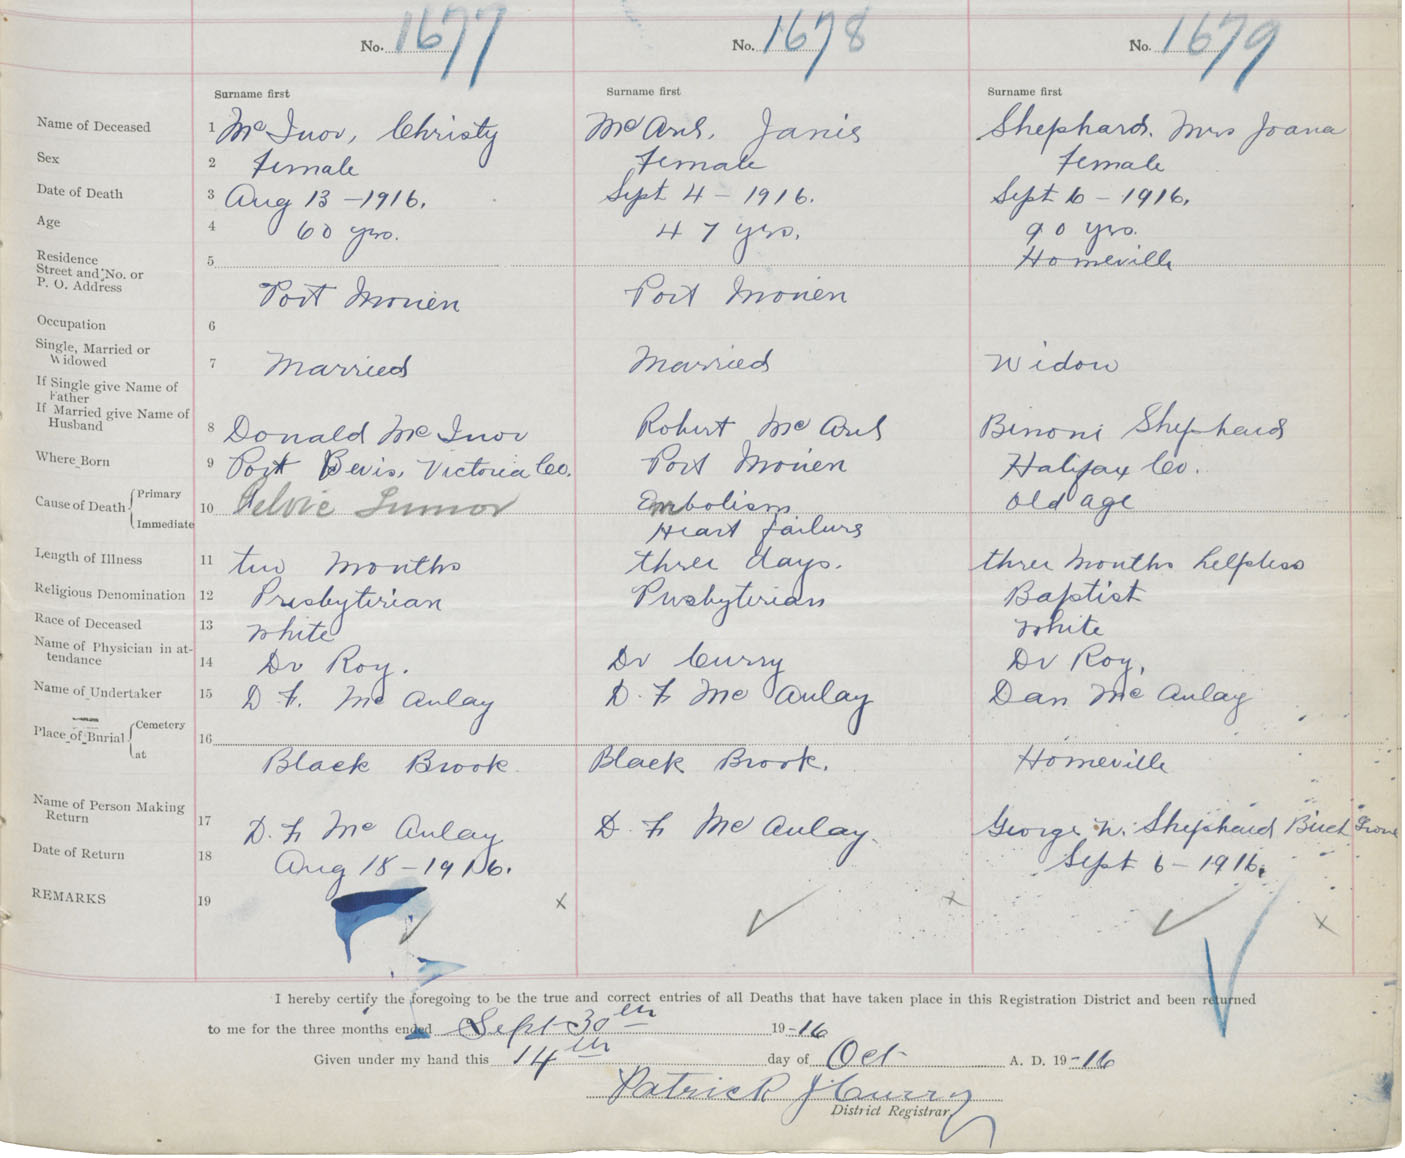 No. 1677 No. 1678 No. 1679
Surname first Surname first Surname first
Name of Deceased 1 Mc Ivor, Christy Mc Aul, Janis Shephard. Mrs Joana
Sex 2 Female Female Female
Date of Death 3 Aug 13 - 1916. Sept 4 - 1916. Sept 6 - 1916.
Age 4 60 yrs. 47 yrs. 90 yrs.
Residence 5 Homeville
Street and No. or
P. O. Address Port Morien Port Morien
Occupation 6
Single, Married or
Widowed 7 Married Married Widow
If Single give Name of
Father
If Married give Name of
Husband 8 Donald Mc Ivor Robert Mc Aul Binoni Shephard
Where Born 9 Port Bevis, Victoria Co. Port Morien Halifax Co.
Cause of Death { Primary 10 Pelvic Tumor Embolism Old age
{ Immediate Heart failure
Length of Illness 11 two Months three days. three Months helpless
Religious Denomination 12 Presbyterian Presbyterian Baptist
Race of Deceased 13 White White
Name of Physician in at-
tendance 14 Dr Roy. Dr Curry Dr Roy.
Name of Undertaker 15 D. F. Mc Aulay D. F Mc Aulay Dan Mc Aulay
Place of Burial { Cemetery 16
{ at Black Brook Black Brook. Homeville
Name of Person Making
Return 17 D. F Mc Aulay D. F Mc Aulay. George W. Shephard Birch Grove
Date of Return 18 Aug 18 - 1916. Sept 6 - 1916.
REMARKS 19 x x x
I hereby certify the foregoing to be the true and correct entries of all Deaths that have taken place in this Registration District and been returned
to me for the three months ended Sept 30th 19-16
Given under my hand this 14th day of Oct A. D. 19-16
Patrick J Curry
District Registrar